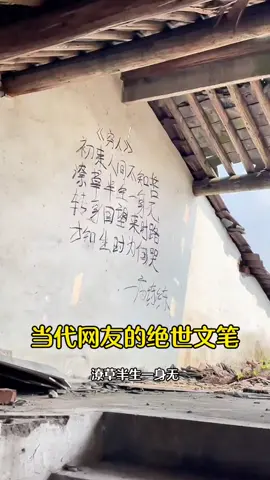 《穷人》
初来人间不知苦
潦草半生一身无
转身回望来时路
才知生时为何哭
当代网友的绝世文笔
潦草半生一身无